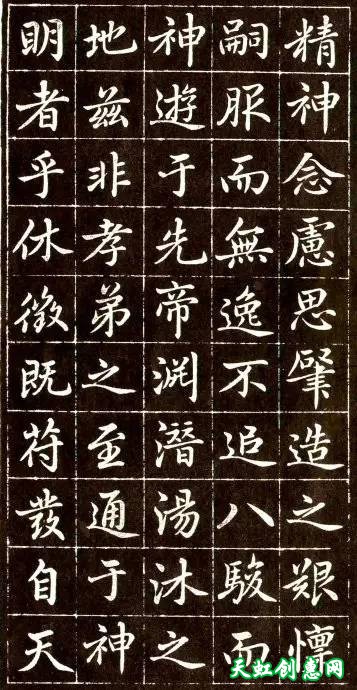 精神念慮思肈造之艱懍
嗣服而無逸不追八駿而
神遊于先帝渊潛湯沐之
地茲非孝弟之至通于神
明者乎休徵既苻發自天
天虹创意网